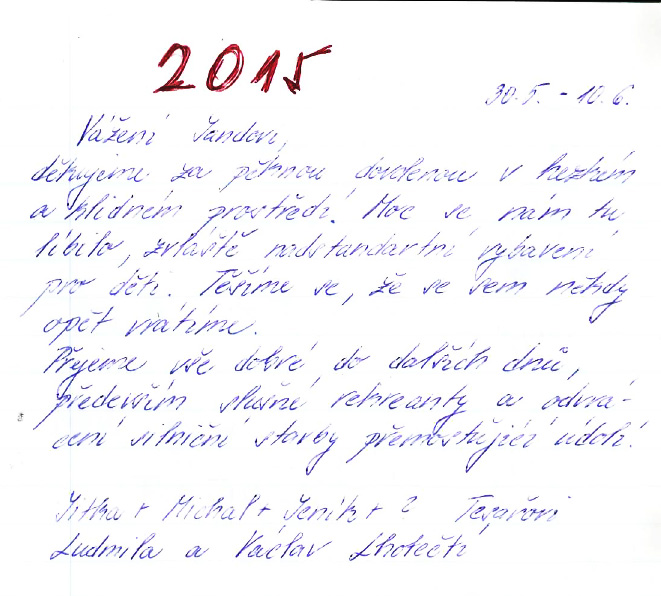 2015
30.5. - 10.6.
Vážení Jandovi,
děkujeme za pěknou dovolenou v hezkém
a klidném prostředí. Moc se nám tu
líbilo, zvláště nadstandartní vybavení
pro děti. Těšíme se, že se sem někdy
opět vrátíme.
Přejeme vše dobré do dalších dnů,
především slušné rekreanty a odvrá-
cení silniční stavby přemostující údolí.
Jitka + Michal + Jeník + ? Tesařovi
Ludmila a Václav Lhotečtí